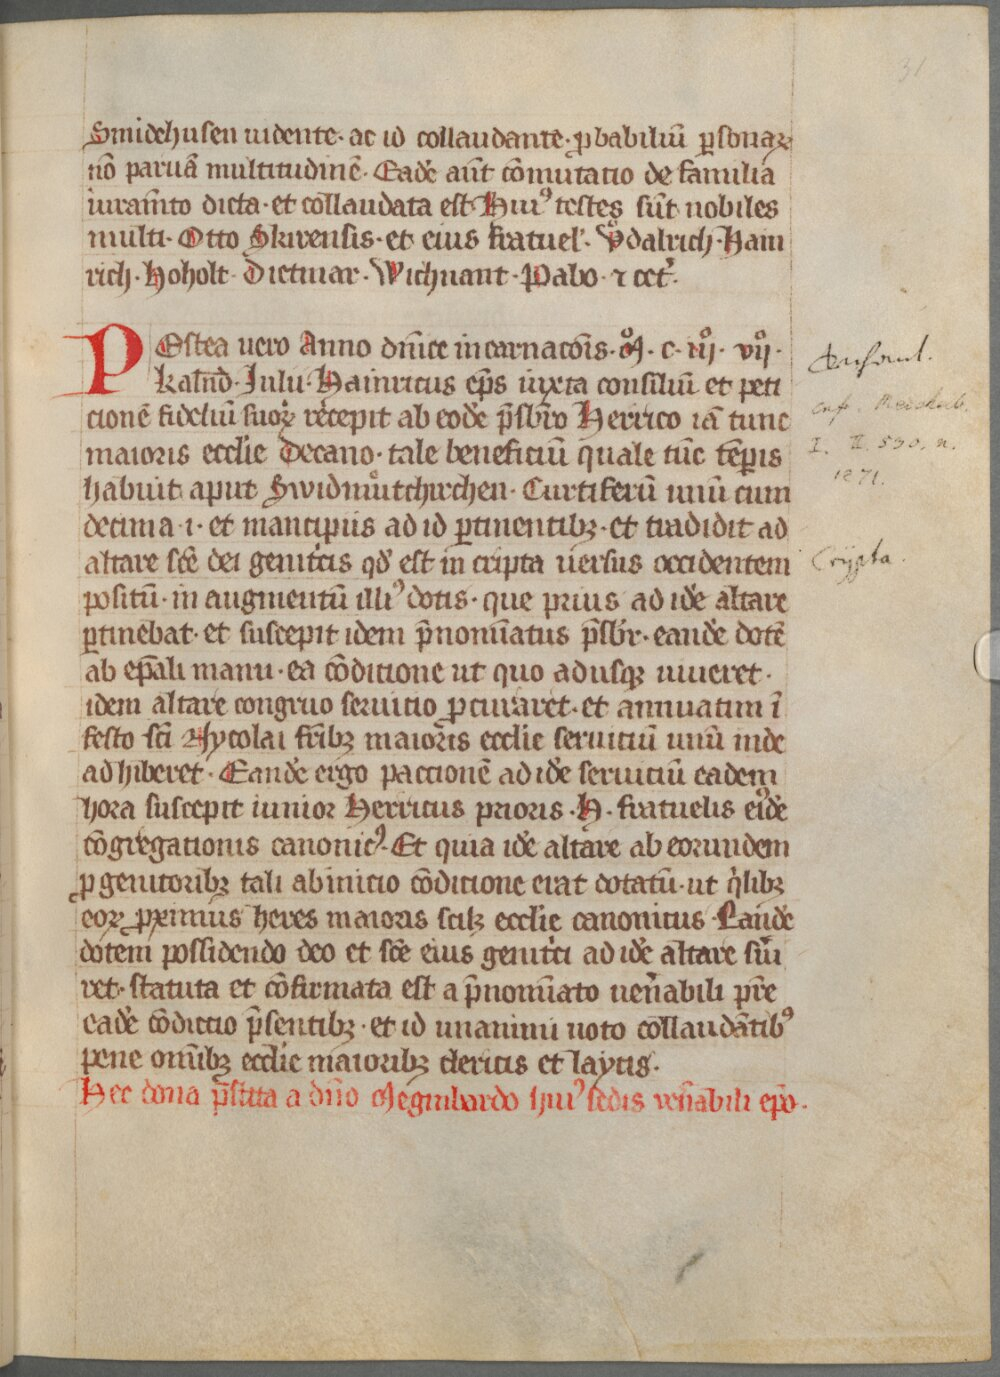 31
Smidehusen uidente· ac id collaudante· ꝓbabiliū ꝑsonaꝝ
nō paruā multitudinē· Eadē aūt cōmutatio de familia
iuramͣto dicta· et collaudata est· Huiꝰ testes sūt nobiles
multi· Otto Skirensis· et eius fratuel'· Vͦdalrich· Hain
rich· Hoholt· Dietmar· Wichnant· Pabo· ⁊ cet̓·
POstea uero Anno dn̄ice incarnacōis· Mͦ· c· iiiͦ· viiͦ·
kalnd̄· Iulii· Hainricus ep̄s iuxta consiliū et peti
cionē fideliū suoꝝ recepit ab eodē p̄sbr̄o Herrico iā tunc
maioris eccl̄ie Decano· tale beneficiū quale tūc tēpis
habuit aput Swidmuͦtchirchen· Curtiferū unū cum
decima ·i· et mancipiis ad id ꝑtinentibꝫ· et tradidit ad
altare sc̄e dei genitcis qd̓ est in cripta uersus occidentem
positū· in augmentū illiꝰ dotis· que prius ad idē altare
ꝑtinebat· et suscepit idem p̄nomīatus p̄sbr̄· eandē dotē
ab ep̄ali manu· ea cōdicione ut quo adusqꝫ uiueret·
idem altare congruo seruitio ꝓcuraret· et annuatim ī
festo sc̄i Nycolai fr̄ibꝫ maioris eccl̄ie seruitiū unū inde
adhiberet· Eandē ergo paccionē ad idē seruitiū eadem
hora suscepit iunior Herricus prioris ·H· fratuelis eiꝰdē
cōgregationis canonicꝰ· Et quia idē altare ab eorundem
ꝓgenitoribꝫ tali abinicio cōdicione erat dotatū· ut qͥlibꝫ
eoꝝ ꝓximus heres maioris scilꝫ eccl̄ie canonicus· Eandē
dotem possidendo deo et sc̄e eius genitͥci ad idē altare sūi
ret· statuta et cōfirmata est a p̄nomīato uen̄abili pr̄e
eadē cōdictio p̄sentibꝫ· et id unanimi uoto collaudātibꝰ
pene omībꝫ eccl̄ie maioribꝫ clericis et laycis·
Hec dona p̄stita a dn̄o Meginwardo huiꝰ sedis uen̄abili ep̄o·
I. II. 530. n.
1271.
Crypta.